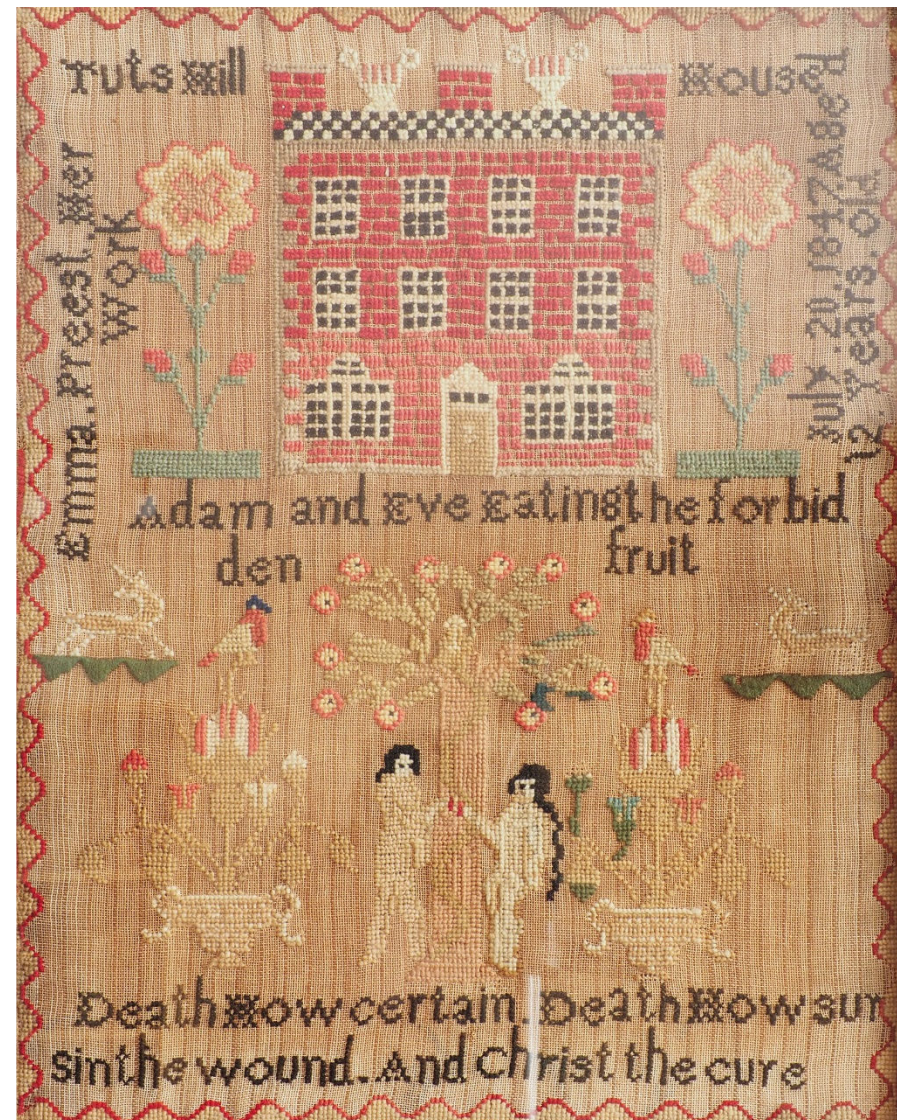 Tuts Hill House
Emma. Preest. Her
work
July. 20. 1847 Aged
12. Years. old
Adam and Eve Eating the forbid
den fruit
Death How certain. Death How sur
sin the wound. And Christ the cure